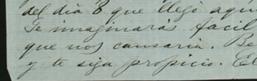 del dia 8 que llegó aqui
Te imaginaras facil
que nos causaria.
y te siga propicio. El